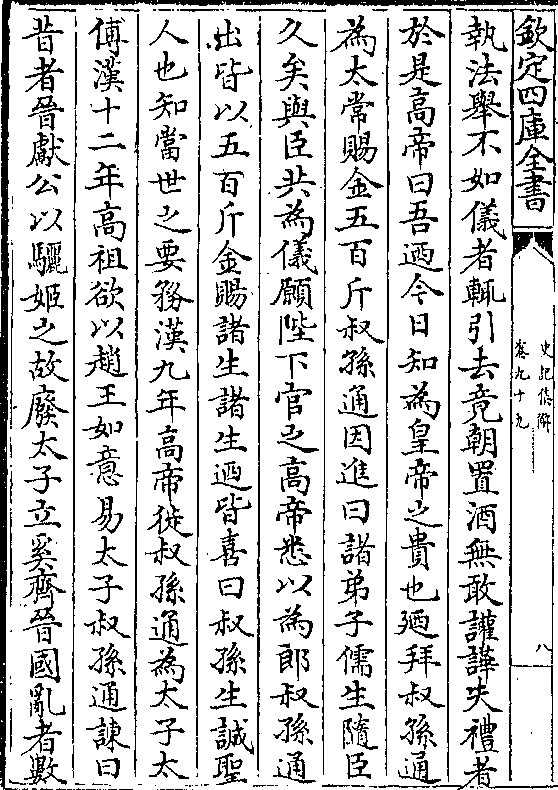 欽定四庫全書
史記集解
卷九十九
八
執法舉不如儀者輒引去竟朝置酒無敢讙譁失禮者
於是高帝曰吾迺今日知為皇帝之貴也廼拜叔孫通
為太常賜金五百斤叔孫通因進曰諸弟子儒生隨臣
久矣與臣共為儀願陛下官之高帝悉以為郎叔孫通
出皆以五百斤金賜諸生諸生迺皆喜曰叔孫生誠聖
人也知當世之要務漢九年高帝徙叔孫通為太子太
傅漢十二年高祖欲以趙王如意易太子叔孫通諫曰
昔者晉獻公以驪姬之故廢太子立奚齊晉國亂者數